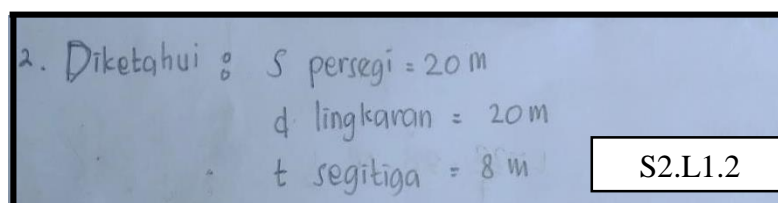 2. Diketahui : S persegi = 20 m
d lingkaran = 20 m
t segitiga = 8 m
S2.L1.2